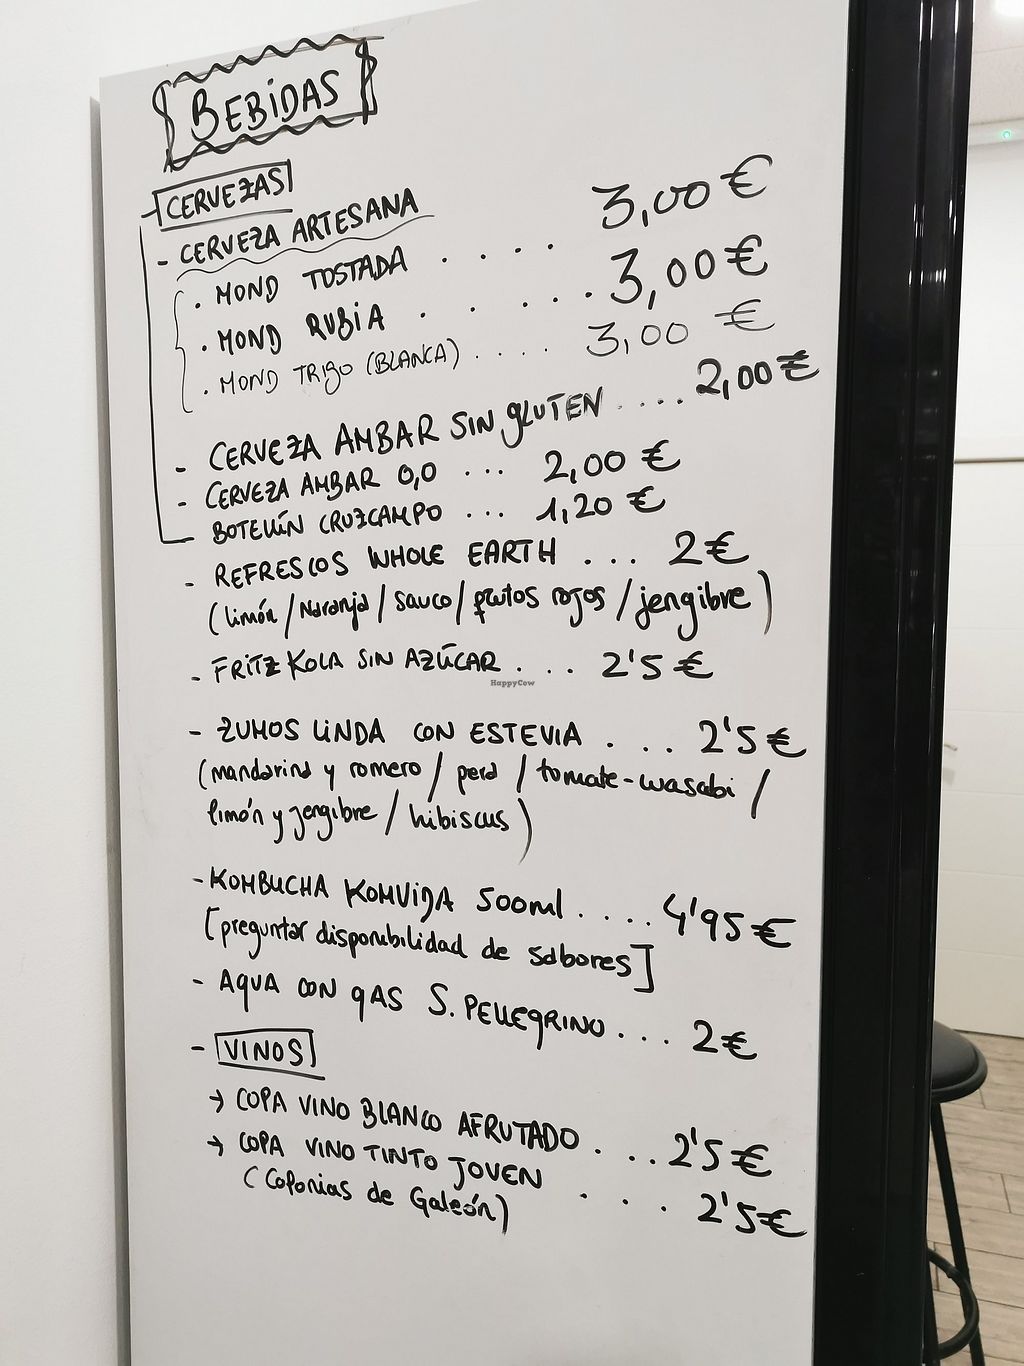 BEBIDAS
CERVEZAS
- CERVEZA ARTESANA
. MOND TOSTADA .... 3,00 €
. MOND RUBIA ..... 3,00 €
. MOND TRIGO (BLANCA) .... 3,00 €
- CERVEZA AMBAR SIN GLUTEN .... 2,00 €
- CERVEZA AMBAR 0,0 ... 2,00 €
- BOTELLÍN CRUZCAMPO ... 1,20 €
- REFRESCOS WHOLE EARTH ... 2 €
(limón / Naranja / sauco / frutos rojos / jengibre)
- FRITZ KOLA SIN AZÚCAR .... 2'5 €
HappyCow
- ZUMOS LINDA CON ESTEVIA .... 2'5 €
(mandarina y romero / pera / tomate-wasabi /
limón y jengibre / hibiscus)
- KOMBUCHA KOMVIDA 500ml .... 4'95 €
[preguntar disponibilidad de sabores]
- AGUA CON GAS S. PELLEGRINO ... 2 €
- VINOS
→ COPA VINO BLANCO AFRUTADO .... 2'5 €
→ COPA VINO TINTO JOVEN .... 2'5 €
(Colonias de Galeón)